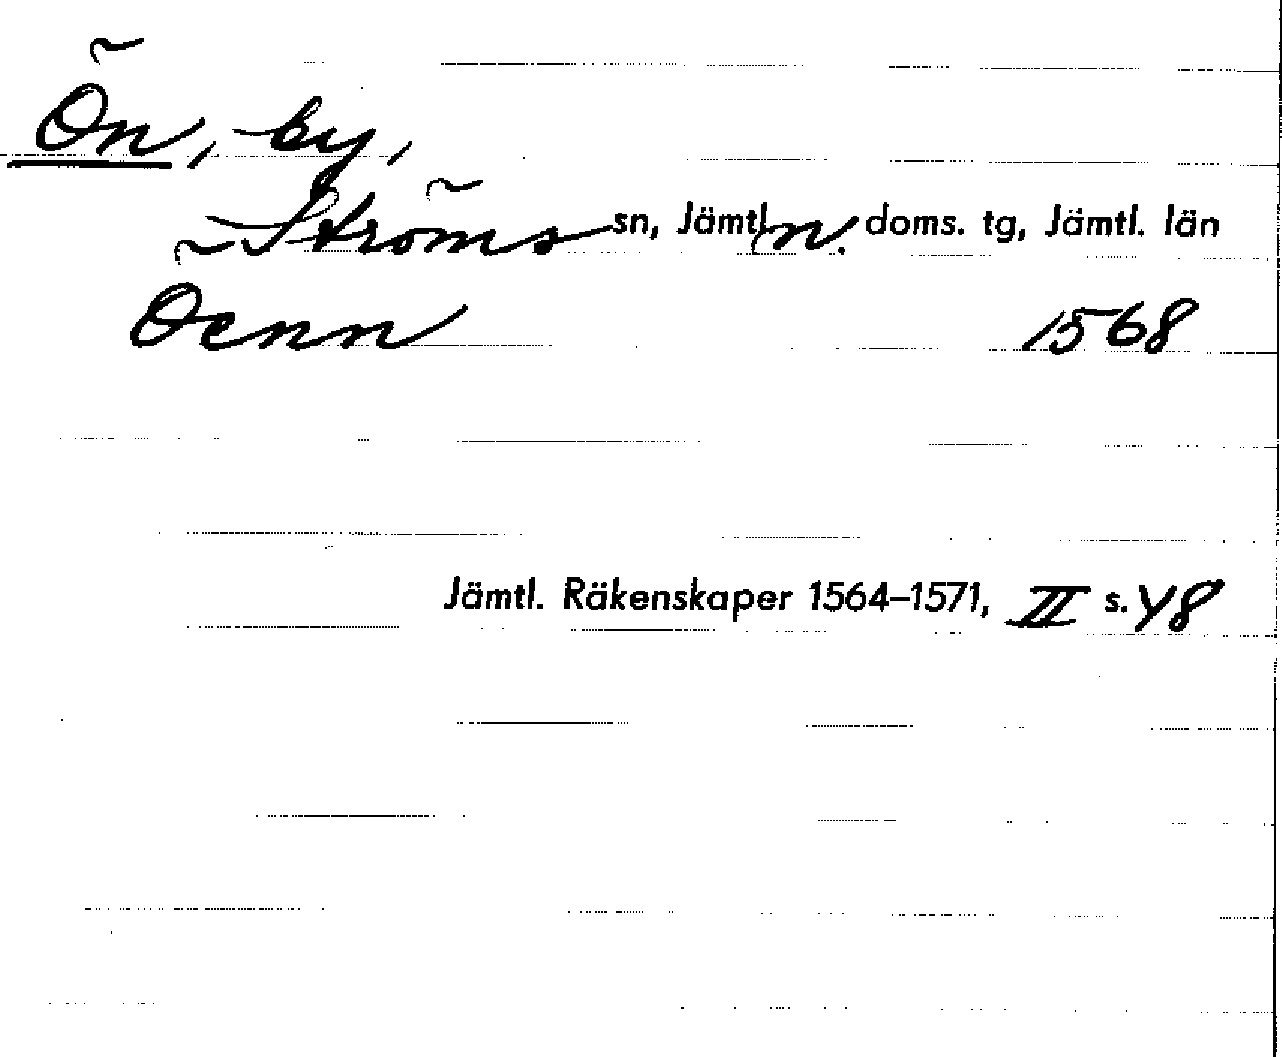 Ön, by,
Ströms sn, Jämtl. n. doms. tg, Jämtl. län
Öenn 1568
Jämtl. Räkenskaper 1564–1571, II s. 48